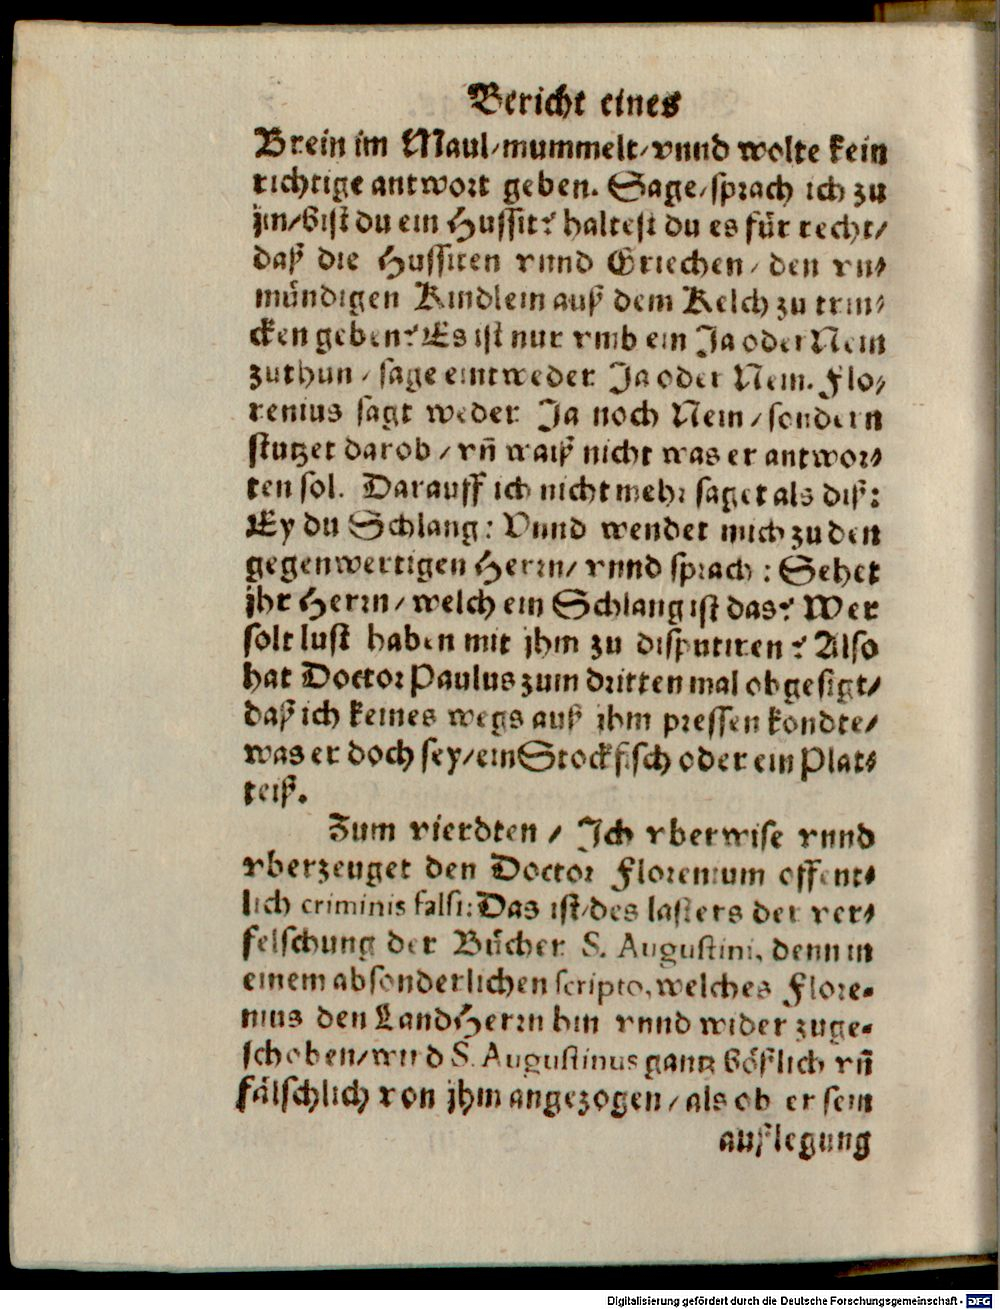 Bericht eines
Brein im Maul/mummelt/vnnd wolte kein
richtige antwort geben. Sage/sprach ich zu
jm/bist du ein Hussit? haltest du es für recht/
daß die Hussiten vnnd Griechen/ den vn⸗
mündigen Kindlein auß dem Kelch zu trin⸗
cken geben? Es ist nur vmb ein Ja oder Nein
zuthun/ sage eintweder Ja oder Nein. Flo⸗
renius sagt weder Ja noch Nein/ sondern
stutzet darob/ vñ waiß nicht was er antwor⸗
ten sol. Darauff ich nicht mehr saget als diß:
Ey du Schlang: Vnnd wendet mich zu den
gegenwertigen Herrn/ vnnd sprach: Sehet
jhr Herrn/ welch ein Schlang ist das? Wer
solt lust haben mit jhm zu disputiren? Also
hat Doctor Paulus zum dritten mal obgesigt/
daß ich keines wegs auß jhm pressen kondte/
was er doch sey/ein Stockfisch oder ein Plat⸗
teiß.
Zum vierdten/ Ich vberwise vnnd
vberzeuget den Doctor Florenium offent⸗
lich criminis falsi: Das ist/des lasters der ver⸗
felschung der Bücher S. Augustini, denn in
einem absonderlichen scripto, welches Flore⸗
nius den LandHerrn hin vnnd wider zuge⸗
schoben/wird S. Augustinus gantz bößlich vñ
fälschlich von jhm angezogen/ als ob er sein
außlegung
Digitalisierung gefördert durch die Deutsche Forschungsgemeinschaft - DFG